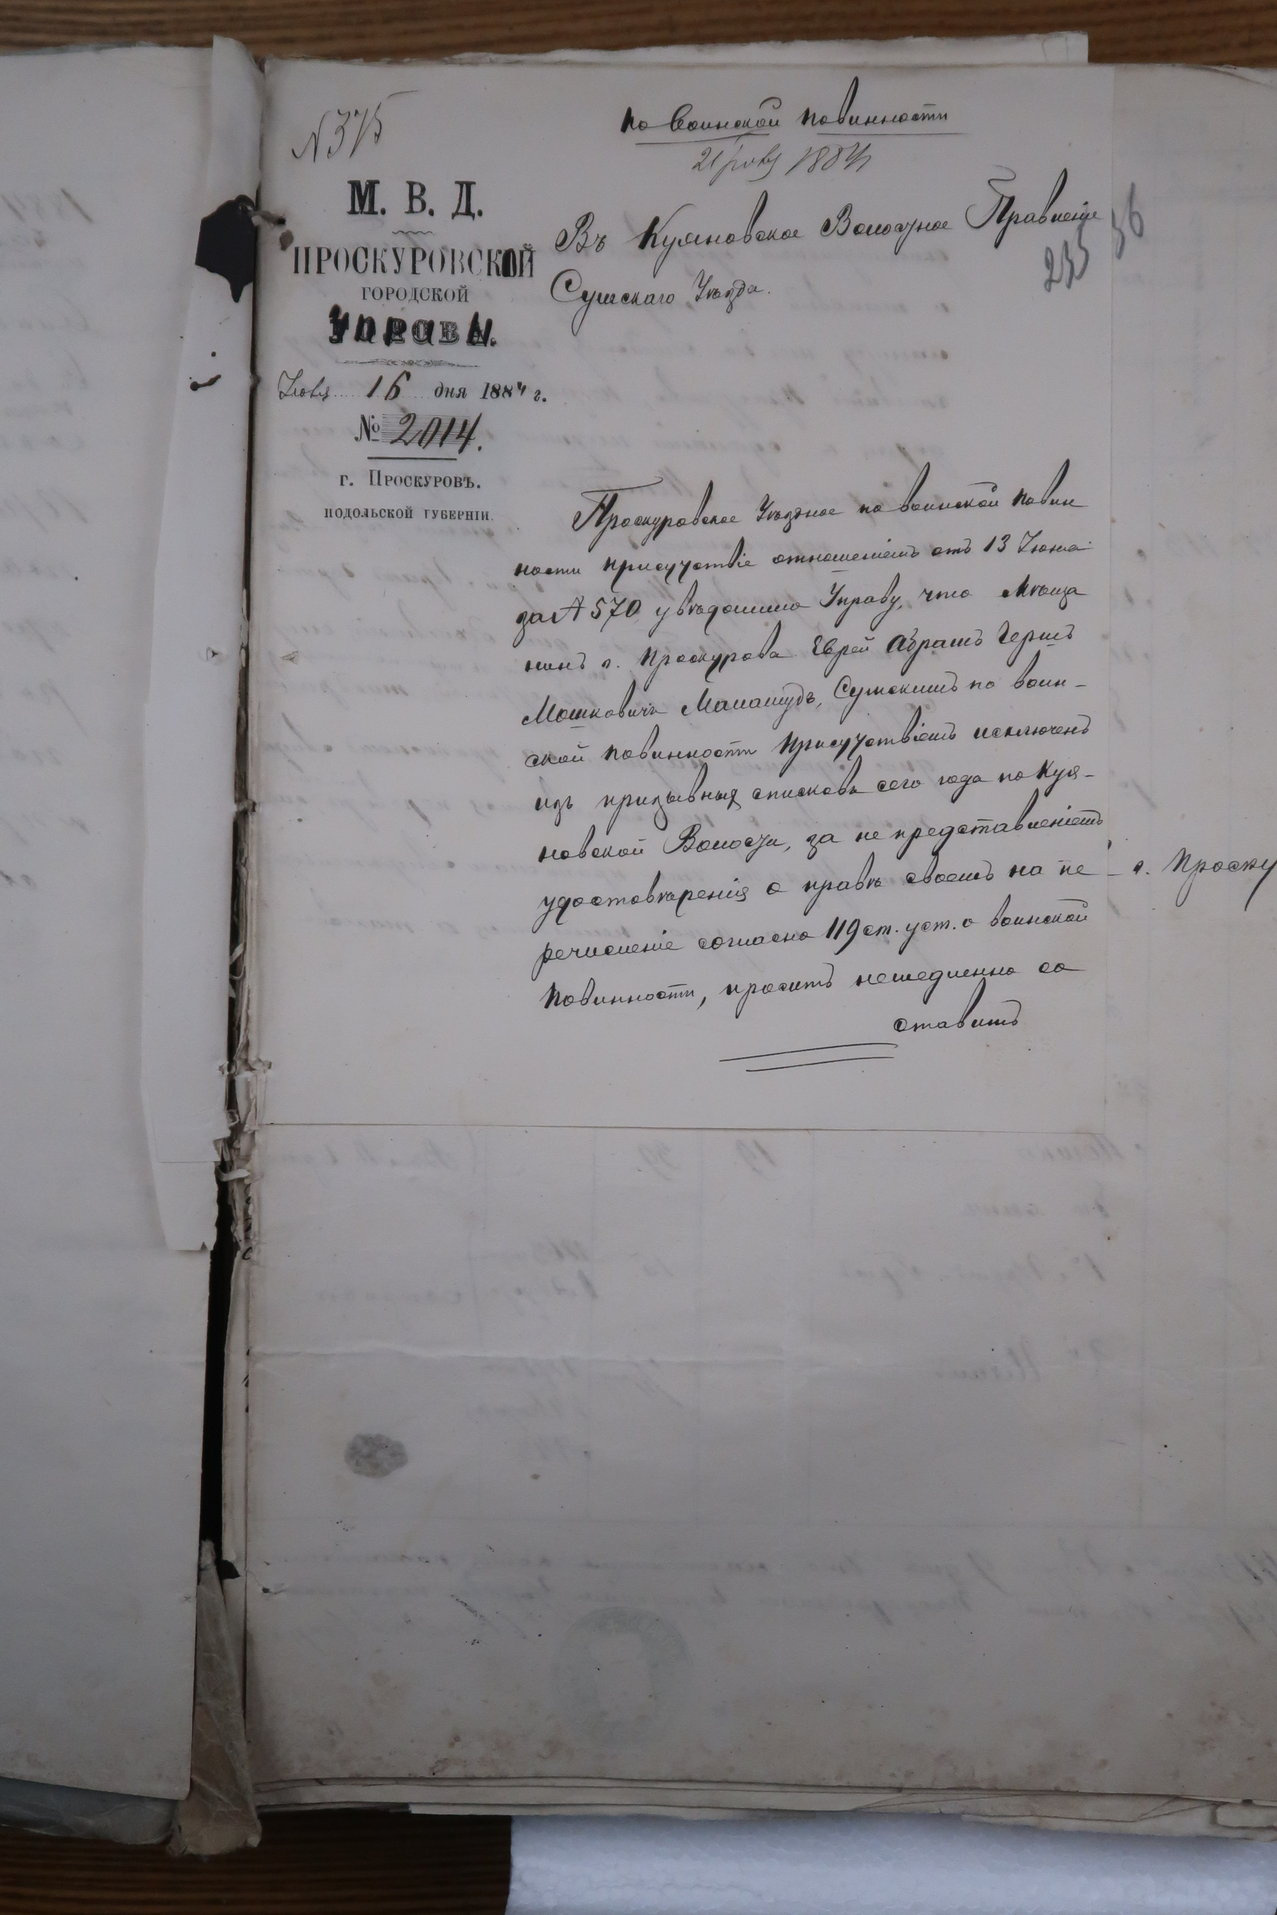 N 375
По воинской повинности
21 юля 1884
М. В. Д.
ПРОСКУРОВСКОЙ
ГОРОДСКОЙ
УПРАВЫ.
Іюля 16 дня 1884 г.
№ 2014.
г. Проскуровъ.
ПОДОЛЬСКОЙ ГУБЕРНІИ.
Въ Куяновское Волостное Правленіе
Сумскаго Уѣзда.
235 56
Проскуровское Уѣздное по воинской повин
ности присутствіе отношеніемъ отъ 13 Іюня
за № 570 увѣдомило Управу, что Мѣща
нинъ г. Проскурова Еврей Абрамъ Гершъ
Мошковичъ Маламудъ, Сумскимъ по воин-
ской повинности Присутствіемъ исключенъ
изъ призывныхъ списковъ сего года по Куя-
новской Волости, за не представленіемъ
удостовѣренія о правѣ своемъ на пе
речисленіе согласно 119 ст. уст. о воинской
повинности, проситъ немедленно со
ставитъ
г. Проску